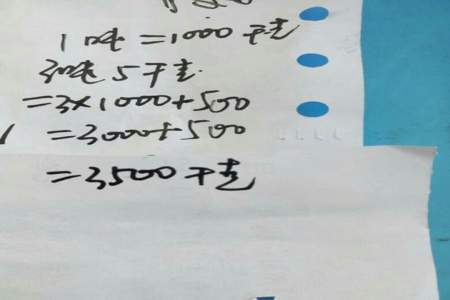 1吨=1000千克
3吨5千克
=3×1000+500
=3000+500
=3500千克